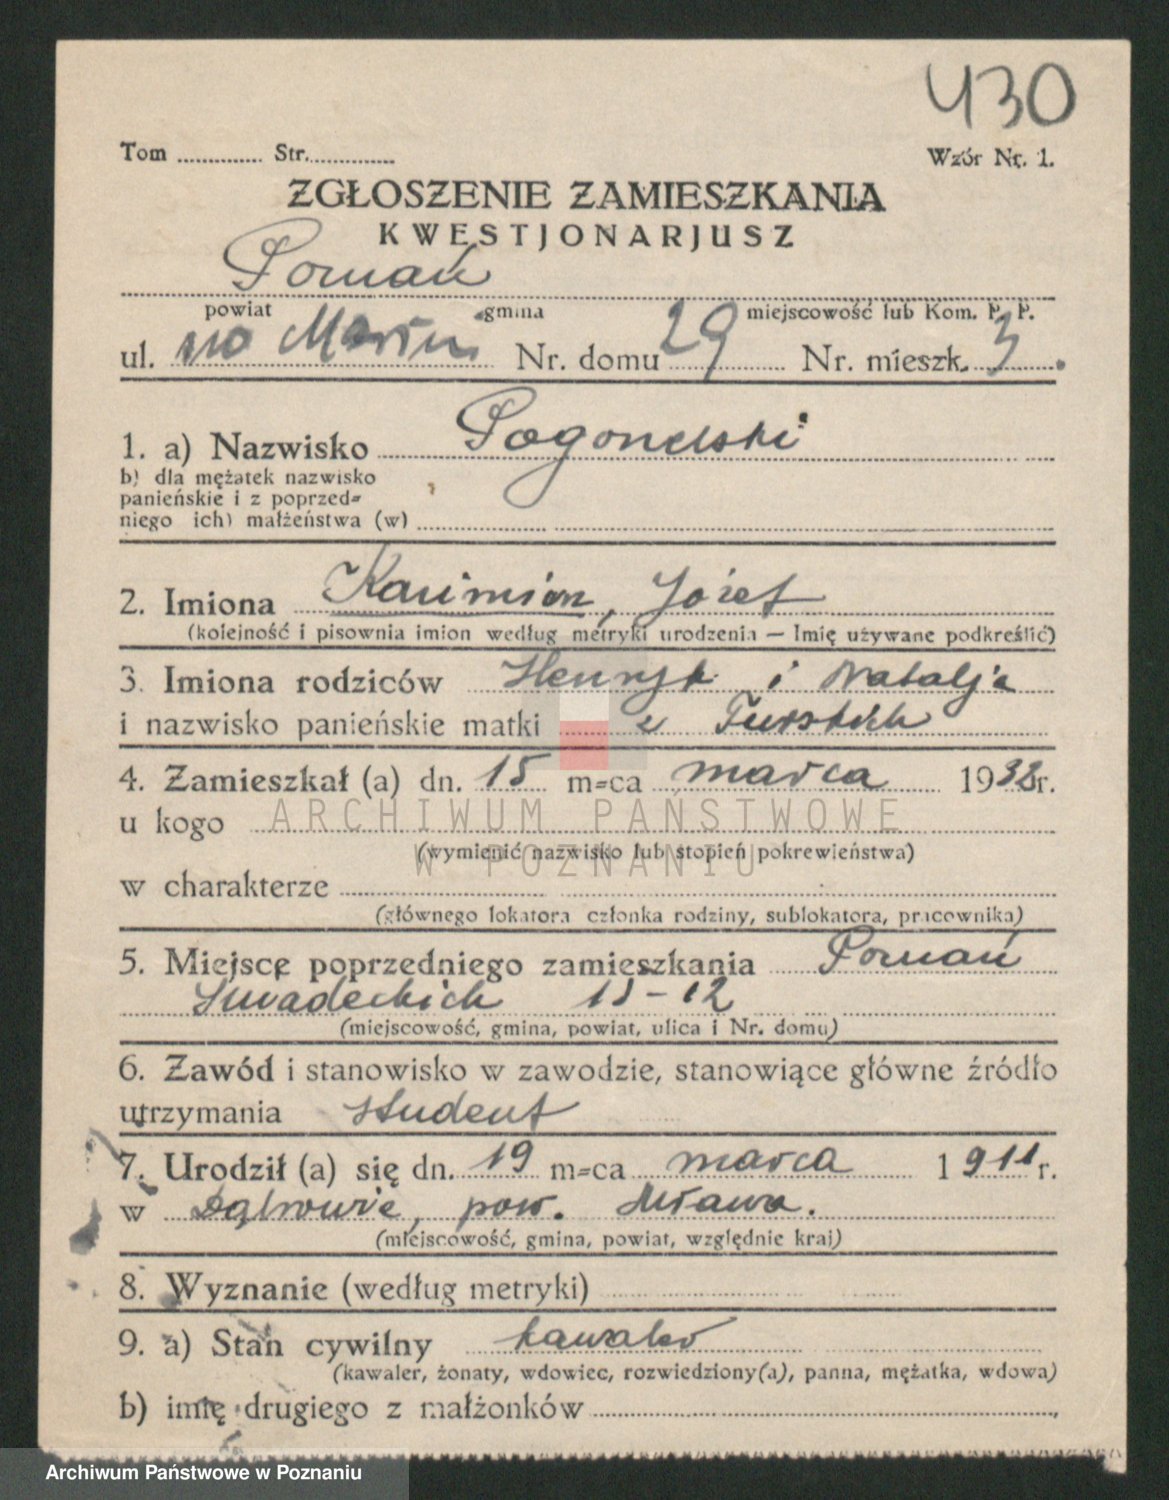 430
Tom ............. Str.............
Wzór Nr. 1.
ZGŁOSZENIE ZAMIESZKANIA
KWESTJONARJUSZ
Poznań
powiat gmina miejscowość lub Kom. P. P.
ul. św Marcin Nr. domu 29 Nr. mieszk. 3.
1. a) Nazwisko Pogonelski
b) dla mężatek nazwisko
panieńskie i z poprzed-
niego ich) małżeństwa (w)
2. Imiona Kazimierz, Józef
(kolejność i pisownia imion według metryki urodzenia — Imię używane podkreślić)
3. Imiona rodziców Henryk i Natalja
i nazwisko panieńskie matki z Turskich
4. Zamieszkał (a) dn. 15 m-ca marca 1932 r.
ARCHIWUM PAŃSTWOWE
u kogo
(wymienić nazwisko lub stopień pokrewieństwa)
W POZNANIU
w charakterze
(głównego lokatora członka rodziny, sublokatora, pracownika)
5. Miejsce poprzedniego zamieszkania Poznań
Śniadeckich 15-12
(miejscowość, gmina, powiat, ulica i Nr. domu)
6. Zawód i stanowisko w zawodzie, stanowiące główne źródło
utrzymania student
7. Urodził (a) się dn. 19 m-ca marca 1911 r.
w Dąbrowie, pow. Mława.
(miejscowość, gmina, powiat, względnie kraj)
8. Wyznanie (według metryki)
9. a) Stan cywilny kawaler
(kawaler, żonaty, wdowiec, rozwiedziony(a), panna, mężatka, wdowa)
b) imię drugiego z małżonków
Archiwum Państwowe w Poznaniu